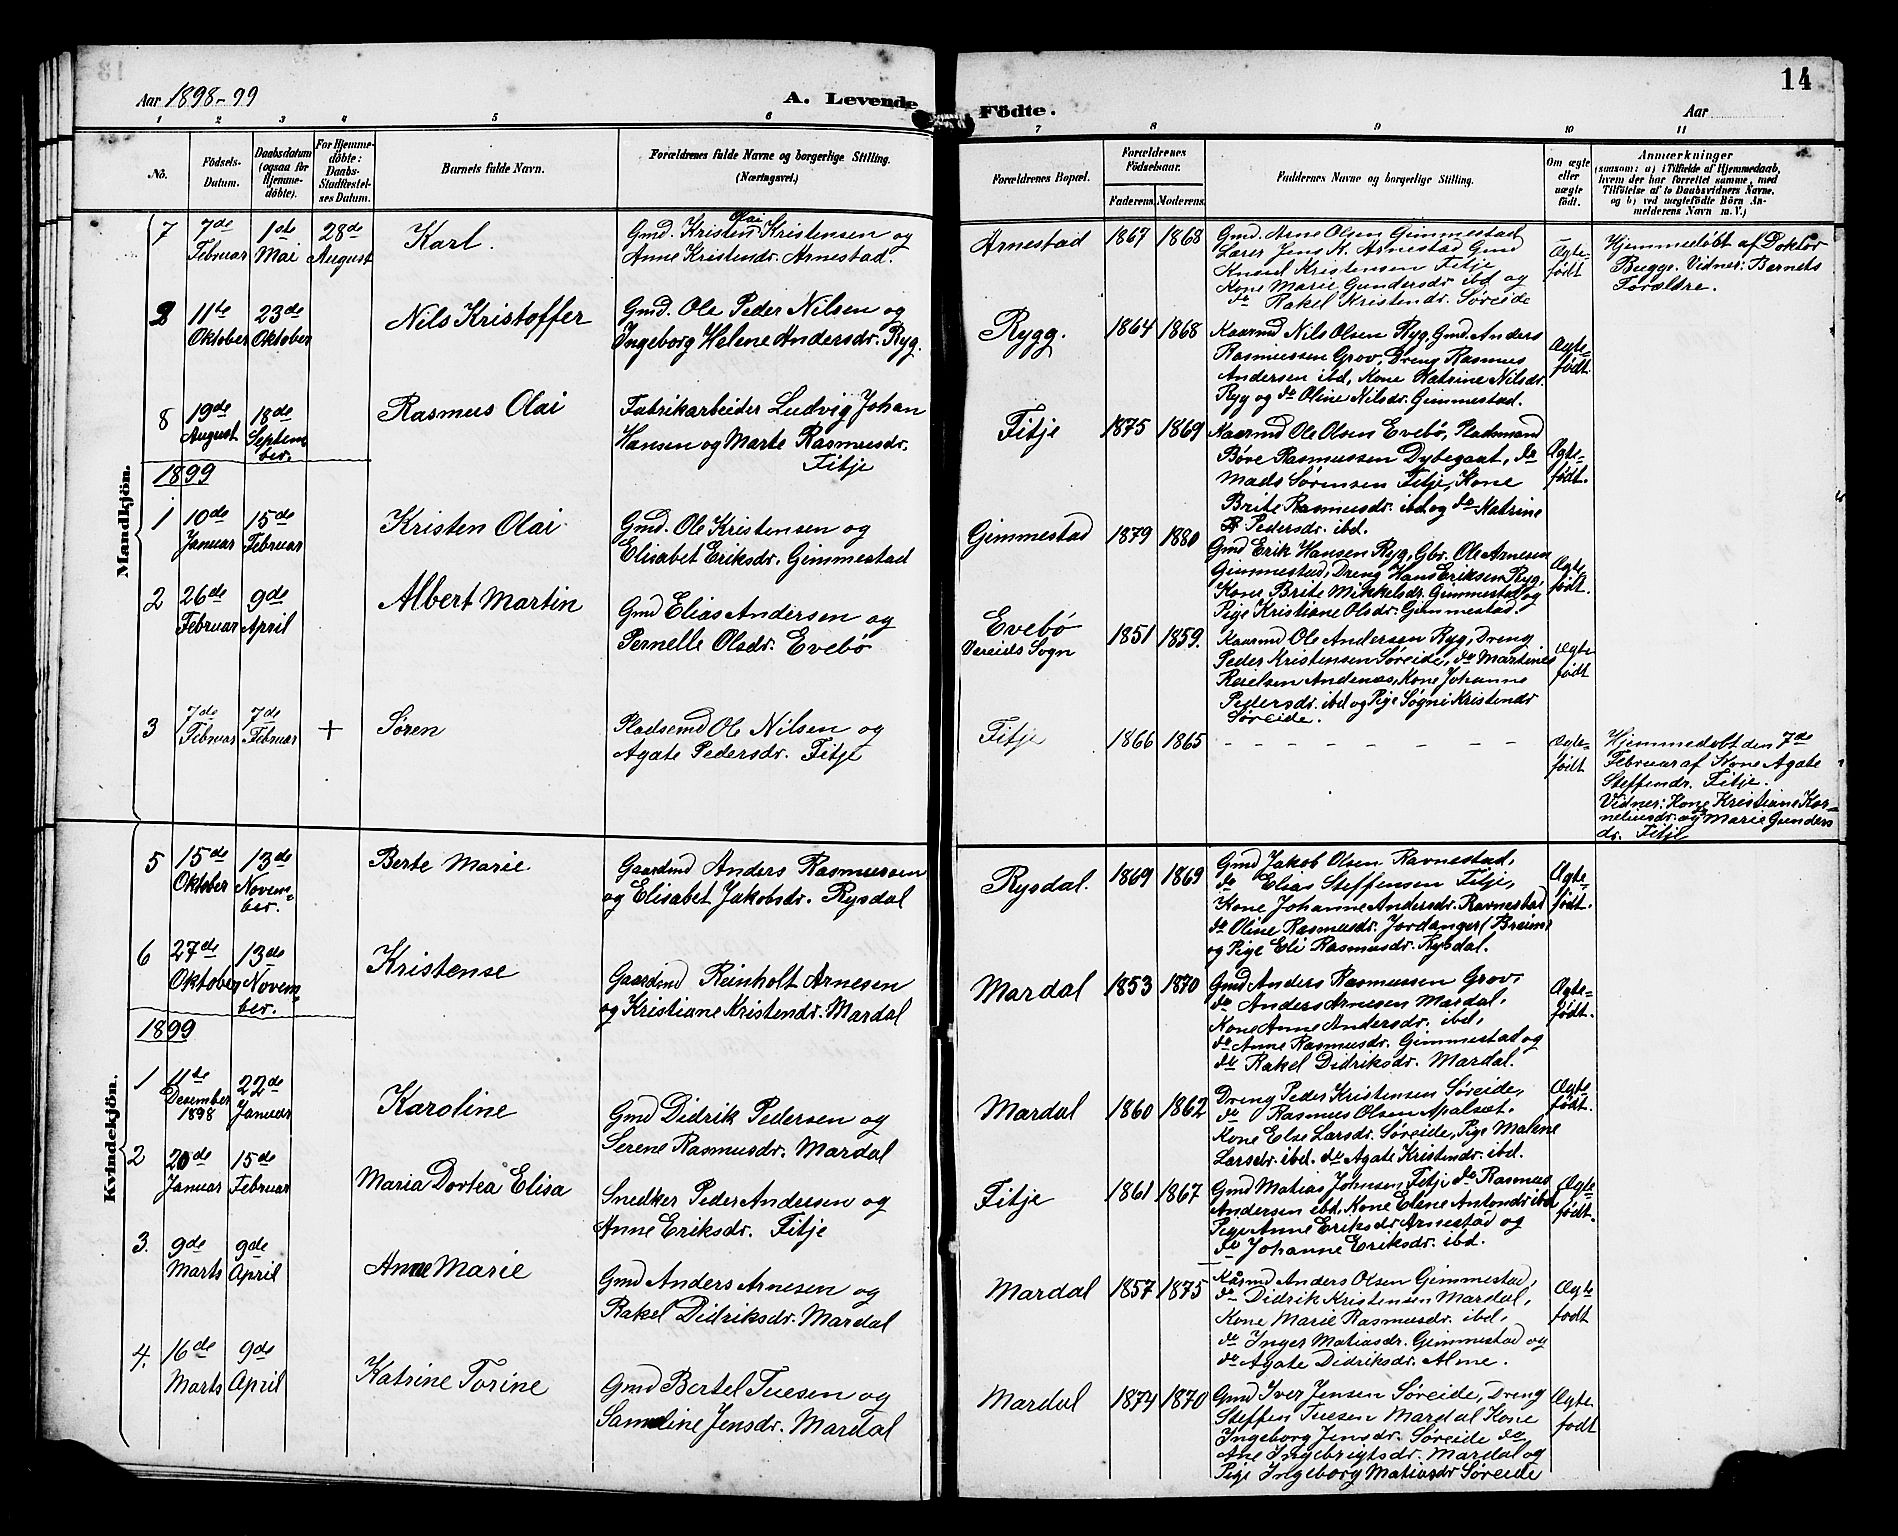 Aar 1898-99
A. Levende
Födte.
14
Aar
1 2 3 4 5 6 7 8 9 10 11
No.
Födsels-
Datum.
Daabsdatum
(ogsaa for
Hjemme-
döbte).
For Hjemme-
döbte:
Daabs-
Stadfæstel-
ses Datum.
Barnets fulde Navn.
Forældrenes fulde Navne og borgerlige Stilling.
(Næringsvei.)
Forældrenes Bopæl.
Forældrenes
Födselsaar.
Faderens. Moderens.
Faddernes Navne og borgerlige Stilling.
Om ægte
eller
uægte
födt.
Anmærkninger
(saasom: a) i Tilfælde af Hjemmedaab,
hvem der har forrettet samme, med
Tilföielse af to Daabsvidners Navne,
og b) ved uægtefödte Börn An-
melderens Navn m. V.)
Mandkjön.
7
7de
Februar
1ste
Mai
28de
August
Karl.
Gmd. Kristen Olai Kristensen og
Anne Kristendr. Arnestad.
Arnestad
1867 1868
Gmd. Arne Olsen Gimmestad
Lærer Jens K. Arnestad Gmd
Knud Kristensen Fitje
Kone Marie Gundersdr ibd og
do Rakel Kristendr. Søreide
Ægte-
født
Hjemmedøbt af Doktor
Bugge. Vidner: Barnets
Forældre.
11te
Oktober
23de
Oktober
Nils Kristoffer
Gmd. Ole Peder Nilsen og
Ingeborg Helene Andersdr. Ryg.
Rygg.
1864 1868
Kaarmd Nils Olsen Ryg, Gmd. Anders
Rasmussen Grov, Dreng Rasmus
Andersen ibd, Kone Katrine Nilsdr.
Ryg og do Oline Nilsdr. Gimmestad.
Ægte-
født.
8
19de
August
18de
Septem
ber.
Rasmus Olai
Fabrikarbeider Ludvig Johan
Hansen og Marte Rasmusdr.
Fitje
Fitje
1875 1869
Kaarmd Ole Olsen Evebø, Pladsmand
Børe Rasmussen Dybegaat, do
Mads Sørensen Fitje, Kone
Brite Rasmusdr. ibd og do Katrine
Pedersdr. ibd.
Ægte-
født.
1899
1
10de
Januar
15de
Februar
Kristen Olai
Gmd. Ole Kristensen og
Elisabet Eriksdr. Gimmestad
Gimmestad
1879 1880
Gmd Erik Hansen Ryg, Gbr. Ole Arnesen
Gimmestad, Dreng Hans Eriksen Ryg,
Kone Brite Mikkelsdr. Gimmestad og
Pige Kristiane Olsdr. Gimmestad.
Ægte
født.
2
26de
Februar
9de
April
Albert Martin
Gmd Elias Andersen og
Pernelle Olsdr. Evebø
Evebø
Vereids Sogn
1851 1859.
Kaarmd Ole Andersen Ryg, Dreng
Peder Kristensen Søreide, do Martines
Andenæs, Kone Johanne
Pedersdr. ibd og Pige Søgni Kristendr
Søreide.
Ægte
født
3
7de
Februar
7de
Februar
+
Søren
Pladsemd Ole Nilsen og
Agate Pedersdr. Fitje
Fitje
1866 1865
- - - - - - - - -
Ægte-
født
Hjemmedøbt den 7de
Februar af Kone Agate
Steffendr. Fitje.
Vidner: Kone Kristiane Kor-
neliusdr. og Marie Gunders
dr. Fitje
Kvindekjön.
5
15de
Oktober
13de
Novem-
ber.
Berte Marie
Gaardmd Anders Rasmussen
og Elisabet Jakobsdr. Rysdal
Rysdal.
1869 1869
Gmd Jakob Olsen Ravnestad,
do Elias Steffensen Fitje,
Kone Johanne Andersdr. Ravnestad
do Oline Rasmusdr. Jordanger / Breim
og Pige Eli Rasmusdr. Rysdal.
Ægte-
født.
6
27de
Oktober
13de
Novem-
ber.
Kristense
Gaardmd Reinholt Arnesen
og Kristiane Kristendr. Mardal
Mardal
1853 1870
Gmd Anders Rasmussen Grov,
do Anders Arnesen Mardal,
Kone Anne Andersdr. ibd,
do Anne Rasmusdr. Gimmestad og
do Rakel Didriksdr. Mardal.
Ægte-
født.
1899
1
11te
Desember
1898
22de
Januar
Karoline
Gmd Didrik Pedersen og
Serene Rasmusdr. Mardal
Mardal
1860 1862
Dreng Peder Kristensen Søreide,
do Rasmus Olsen Apalset.
Kone Else Larsdr. Søreide, Pige Malene
Larsdr. ibd. do Agate Kristendr. ibd.
Ægte
født.
2
20de
Januar
15de
Februar
Maria Dortea Elisa
Snedker Peder Andresen og
Anne Eriksdr. Fitje
Fitje
1861 1867
Gmd Matias Johnsen Fitje do Rasmus
Andersen ibd, Kone Eline Antondr ibd
Pige Anne Eriksdr. Arnestad og
do Johanne Eriksdr. ibd.
Ægte
født.
3.
9de
Marts
9de
April
Anne Marie
Gmd Anders Arnesen og
Rakel Didriksdr. Mardal
Mardal
1857 1875
Kårmd Anders Olsen Gimmestad,
do Didrik Kristensen Mardal,
Kone Marie Rasmusdr. ibd,
do Inger Matiasdr. Gimmestad og
do Agate Didriksdr. Alme.
Ægte
født
4.
16de
Marts
9de
April
Katrine Torine
Gmd Bertel Tuesen og
Sameline Jensdr. Mardal
Mardal
1874 1870
Gmd Iver Jensen Søreide, Dreng
Steffen Tuesen Mardal Kone
Ingeborg Jensdr. Søreide do
Ane Ingebrigtsdr. Mardal og
Pige Ingeborg Matiasdr Søreide
Ægte
født